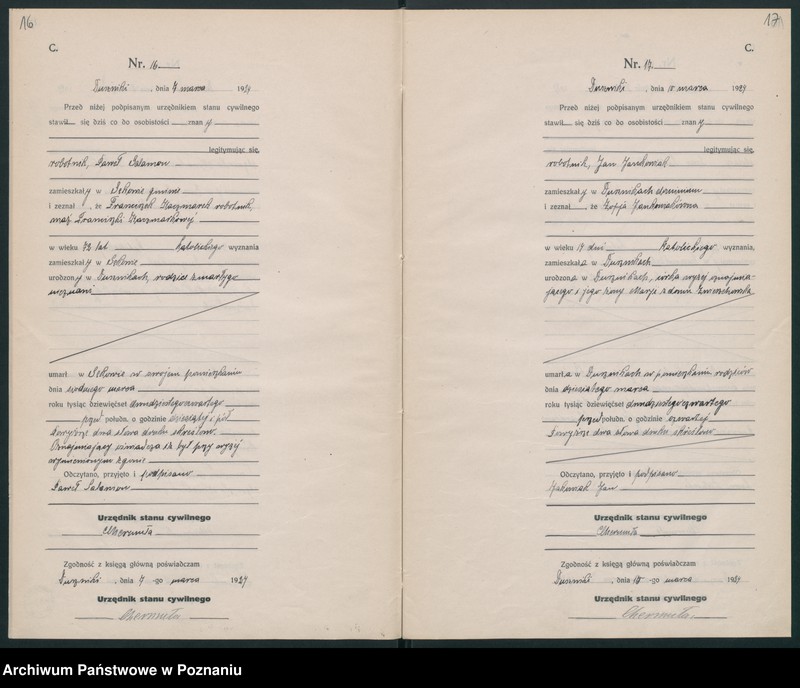 16
C.
Nr. 16
Duszniki, dnia 7 marca 1924
Przed niżej podpisanym urzędnikiem stanu cywilnego
stawił się dziś co do osobistości znany
legitymując się,
robotnik, Paweł Salamon
zamieszkały w Sękowie gminie
i zeznał, że Franciszek Kaczmarek robotnik,
mąż Franciszki Kaczmarkowej
w wieku 72 lat katolickiego wyznania
zamieszkały w Sękowie
urodzony w Dusznikach, rodzice zmarłego
nieznani
umarł w Sękowie w swojem pomieszkaniu
dnia siódmego marca
roku tysiąc dziewięćset dwudziestegoczwartego
przed połudn. o godzinie dziesiątej i pół
Powyżsże dwa słowa druku skreślono.
Oznajmiający oświadcza iż był przy wyżej
wymienionym zgonie
Odczytano, przyjęto i podpisano
Paweł Salamon
Urzędnik stanu cywilnego
Zgodność z księgą główną poświadczam
Duszniki, dnia 7-go marca 1924
Urzędnik stanu cywilnego
17
C.
Nr. 17
Duszniki, dnia 10 marca 1924
Przed niżej podpisanym urzędnikiem stanu cywilnego
stawił się dziś co do osobistości znany
legitymując się,
robotnik, Jan Jankowiak
zamieszkały w Dusznikach dominium
i zeznał, że Zofja Jankowiakówna
w wieku 17 dni katolickiego wyznania,
zamieszkała w Dusznikach
urodzona w Dusznikach, córka wyżej oznajmia-
jącego i jego żony Marji z domu
umarła w Dusznikach w pomieszkaniu rodziców
dnia dziesiątego marca
roku tysiąc dziewięćset dwudziestegoczwartego
przed połudn. o godzinie czwartej
Powyższe dwa słowa druku skreślono
Odczytano, przyjęto i podpisano
Jakowiak Jan
Urzędnik stanu cywilnego
Zgodność z księgą główną poświadczam
Duszniki, dnia 10-go marca 1924
Urzędnik stanu cywilnego
Archiwum Państwowe w Poznaniu